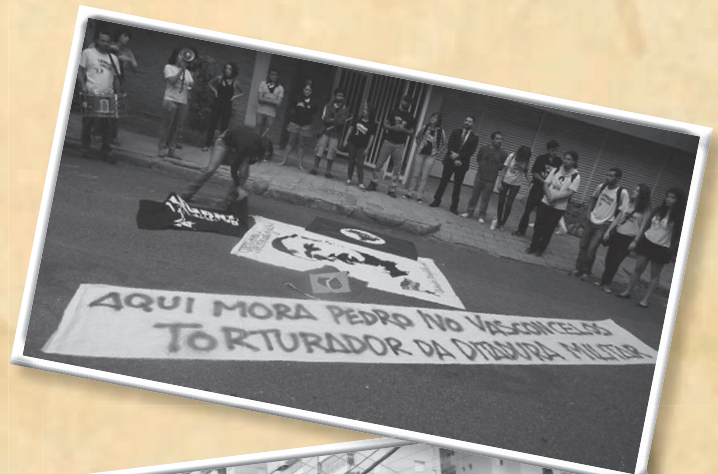 AQUI MORA PEDRO IVO VASCONCELOS
TORTURADOR DA DITADURA MILITAR